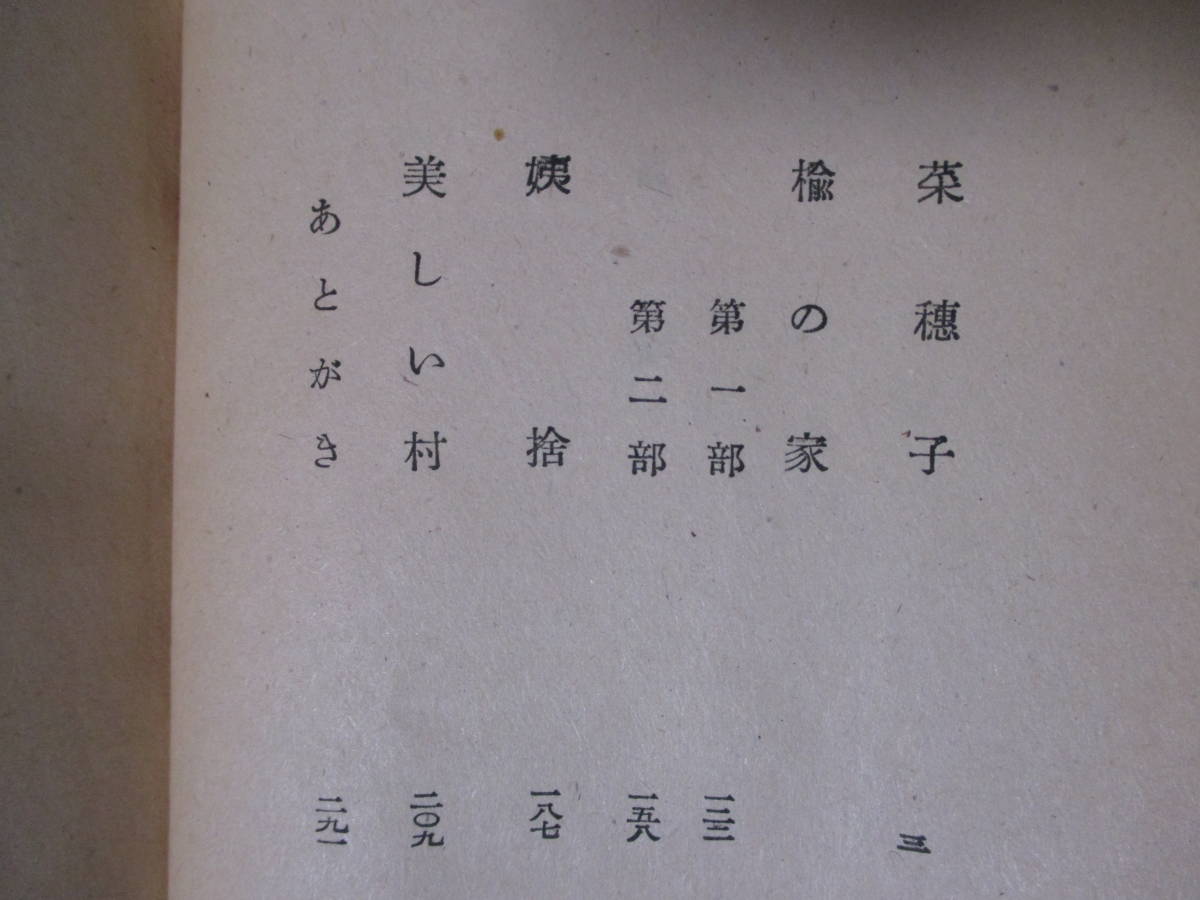 菜穗子 三
楡の家
第一部
第二部 一五八
姨捨 一八七
美しい村 二〇九
あとがき 二九一